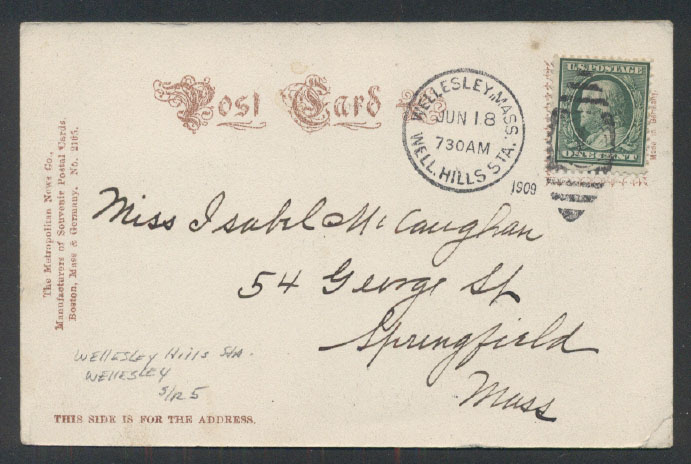 Post Card
U.S. POSTAGE
ONE CENT
Made in Germany
WELLESLEY, MASS.
JUN 18
730AM
WELL. HILLS STA.
1909
The Metropolitan News Co.,
Manufacturers of Souvenir Postal Cards.
Boston, Mass & Germany. No. 2165.
Miss Isabel McCaughan
54 George St
Springfield
Mass
Wellesley Hills Sta.
Wellesley
S/R 5
THIS SIDE IS FOR THE ADDRESS.